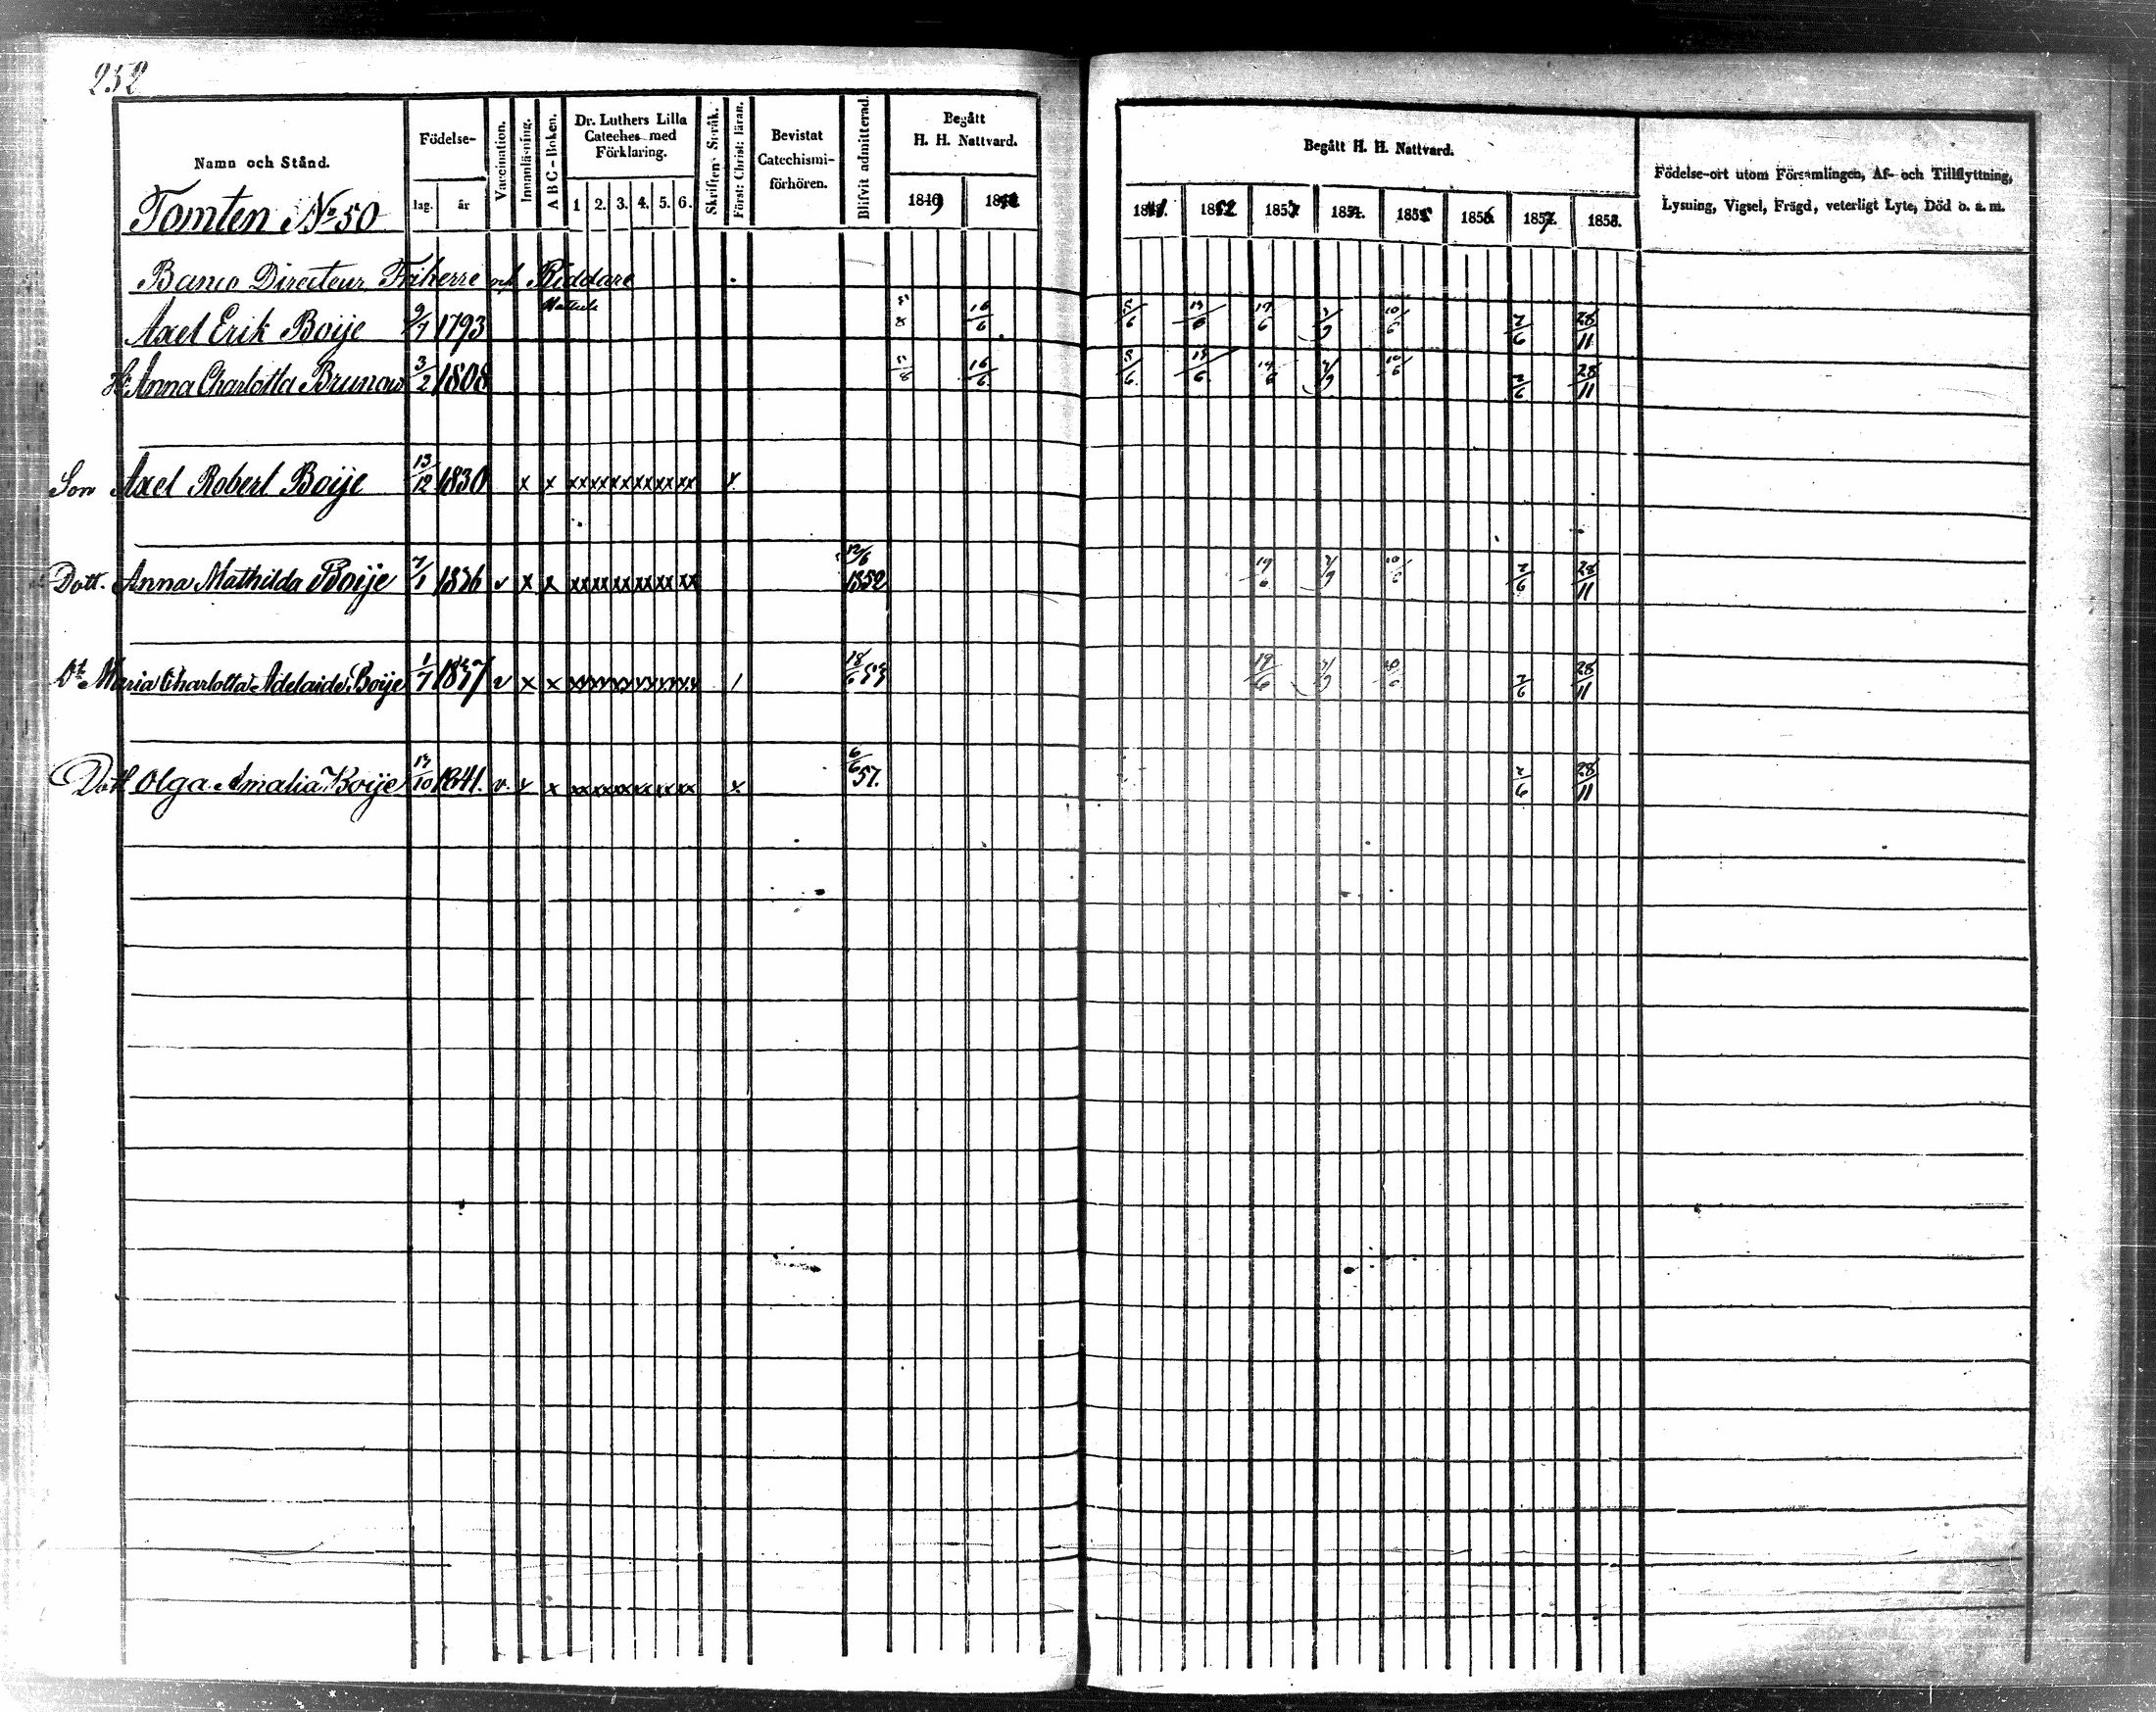 252
Namn och Stånd.
Födelse-
dag. år
Vaccination.
Innanläsning.
ABC-Boken.
Dr. Luthers Lilla Cateches med Förklaring.
1 2. 3. 4. 5. 6.
Skriftens Språk.
Först: Christ: läran.
Bevistat Catechismi-förhören.
Blifvit admitterad.
Begått H. H. Nattvard.
1849
Begått H. H. Nattvard.
1852 1853 1854. 1855 1856 1857. 1858.
Födelse-ort utom Församlingen, Af- och Tillflyttning,
Lysning, Vigsel, Frägd, veterligt Lyte, Död o. s. m.
Tomten No 50
Banco Directeur, Friherre och Riddare
Axel Erik Boije 9/7 1793 16/6 5/6 19/6 19/6 7/9 10/6 7/6 28/11
Hu Anna Charlotta Brunow 3/2 1808 16/6 5/6 19/6 19/6 7/9 10/6 7/6 28/11
Son Axel Robert Boije 13/12 1830 x x xx xx xx xx xx xx x
Dott. Anna Mathilda Boije 7/1 1836 v x x xx xx xx xx xx xx 12/6 1852 19/6 7/9 10/6 7/6 28/11
Dt. Maria Charlotta Adelaide Boije 1/7 1837 v x x xx xx xx xx xx xx 18/6 53 19/6 7/9 10/6 7/6 28/11
Dott Olga Amalia Boije 1841. v. x x xx xx xx xx xx xx x 6/6 57. 7/6 28/11